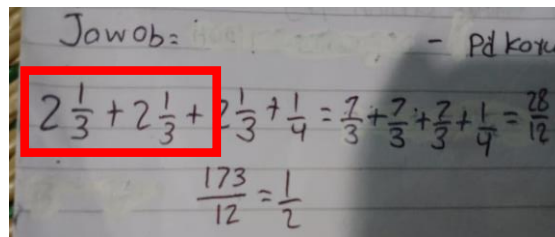 Jawab: - Pd kayu
2 1/3 + 2 1/3 + 2 1/3 + 1/4 = 7/3 + 7/3 + 7/3 + 1/4 = 28/12
173/12 = 1/2